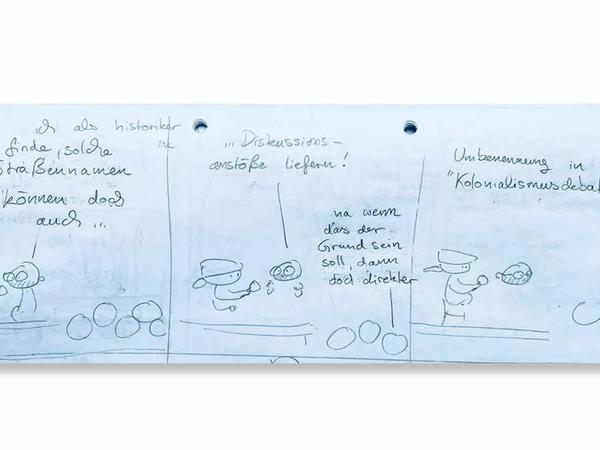 ich als historiker
finde, solche
straßennamen
können doch
auch ...
... Diskussions-
anstöße liefern!
na wenn
das der
Grund sein
soll, dann
doch direkter
Umbenennung in
"Kolonialismusdebat